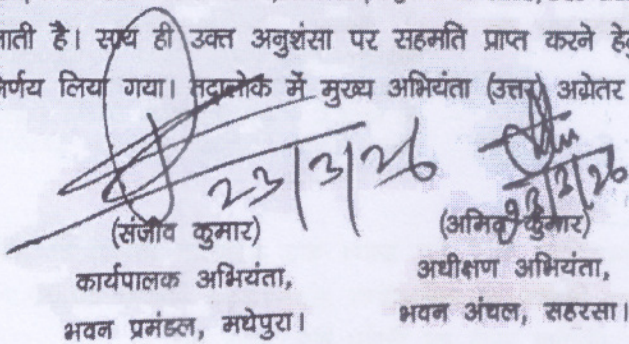 जाती है। साथ ही उक्त अनुशंसा पर सहमति प्राप्त करने हेतु
निर्णय लिया गया। तदालोक में मुख्य अभियंता (उत्तर) अग्रेतर
23/3/26
23/3/26
(संजीव कुमार)
कार्यपालक अभियंता,
भवन प्रमंडल, मधेपुरा।
(अमित कुमार)
अधीक्षण अभियंता,
भवन अंचल, सहरसा।